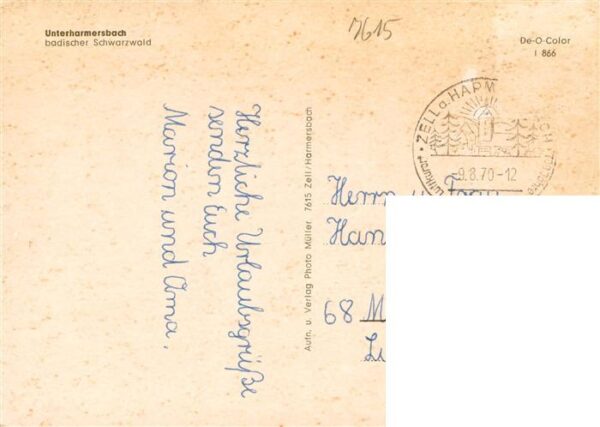 Unterharmersbach
badischer Schwarzwald
7615
De-O-Color
I 866
ZELL a. HARM
9.8.70-12
Herzliche Urlaubsgrüße
senden Euch
Marion und Oma.
Aufn. u. Verlag Photo Müller 7615 Zell/Harmersbach
Herrn u. Frau
Han
68 M